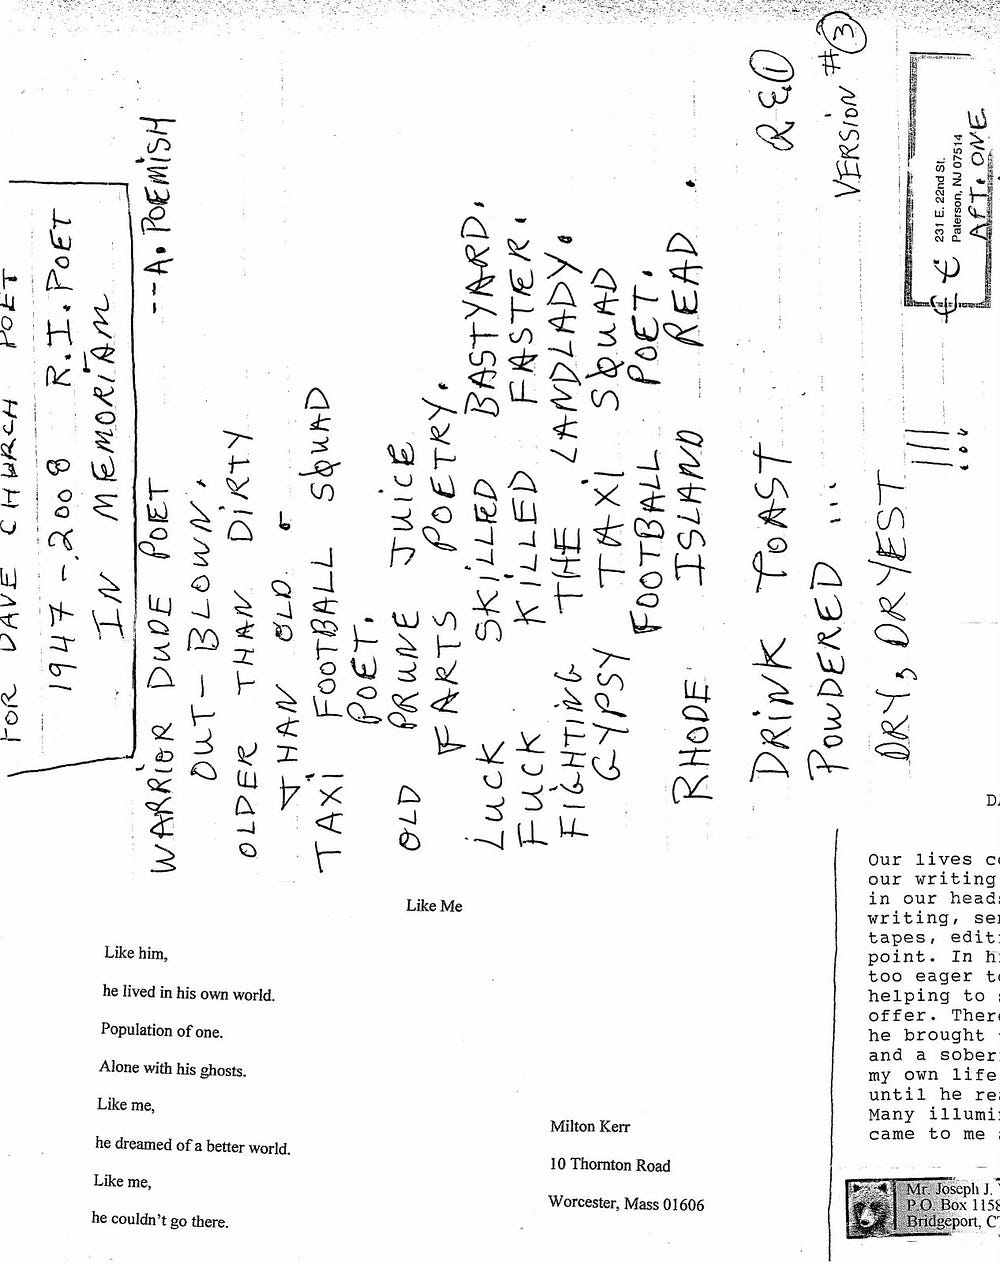 FOR DAVE CHURCH POET
1947-2008 R.I. POET
IN MEMORIAM
WARRIOR DUDE POET --A. POEMISH
OUT-BLOWN.
OLDER THAN DIRTY
THAN OLD.
TAXI FOOTBALL SQUAD
POET.
OLD PRUNE JUICE
FARTS POETRY.
LUCK SKILLED BASTYARD.
FUCK KILLED FASTER.
FIGHTING THE LANDLADY.
GYPSY TAXI SQUAD
FOOTBALL POET.
RHODE ISLAND READ.
DRINK TOAST R.E.①
POWDERED ... VERSION #③
DRY, DRYEST !!!
231 E. 22nd St.
Paterson, NJ 07514
APT. ONE
Like Me
Like him,
he lived in his own world.
Population of one.
Alone with his ghosts.
Like me,
he dreamed of a better world.
Like me,
he couldn't go there.
Milton Kerr
10 Thornton Road
Worcester, Mass 01606
Our lives
our writing
in our heads
writing,
tapes,
point. In
too eager
helping to
offer.
he brought
and a
my own life
until he
Many
came to me
Mr. Joseph J.
P.O. Box 1158
Bridgeport,